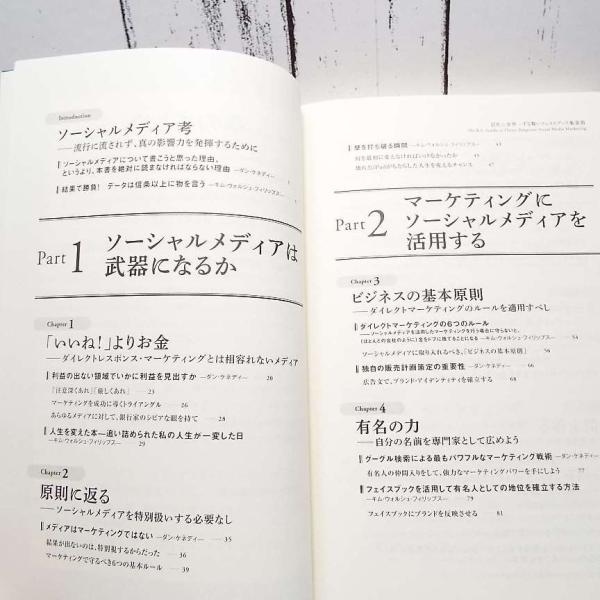 Introduction
ソーシャルメディア考
──流行に流されず、真の影響力を発揮するために
ソーシャルメディアについて書こうと思った理由、
というより、本書を絶対に読まなければならない理由 ─ダン・ケネディ─
結果で勝負! データは信条以上に物を言う ─キム・ウォルシュ・フィリップス─
Part 1 ソーシャルメディアは
武器になるか
Chapter 1
「いいね!」よりお金
──ダイレクトレスポンス・マーケティングとは相容れないメディア
利益の出ない領域でいかに利益を見出すか ─ダン・ケネディ─ 20
「注意深くあれ」「厳しくあれ」 23
マーケティングを成功に導くトライアングル 26
あらゆるメディアに対して、銀行家のシビアな眼を持て 28
人生を変えた本─追い詰められた私の人生が一変した日
─キム・ウォルシュ・フィリップス─ 29
Chapter 2
原則に返る
──ソーシャルメディアを特別扱いする必要なし
メディアはマーケティングではない ─ダン・ケネディ─ 35
結果が出ないのは、特別視するからだった 36
マーケティングで守るべき6つの基本ルール 39
壁を打ち破る瞬間 ─キム・ウォルシュ・フィリップス─ 43
何を最初に変えなければいけなかったか 45
Part 2 マーケティングに
ソーシャルメディアを
活用する
Chapter 3
ビジネスの基本原則
──ダイレクトマーケティングのルールを適用すべし
ダイレクトマーケティングの6つのルール
─キム・ウォルシュ・フィリップス─ 54
ソーシャルメディアに取り入れるべき、「ビジネスの基本原則」 56
独自の販売計画策定の重要性 ─ダン・ケネディ─ 66
広告文で、ブランド・アイデンティティを確立する 68
Chapter 4
有名の力
──自分の名前を専門家として広めよう
グーグル検索による最もパワフルなマーケティング戦術 ─ダン・ケネディ─
有名人の仲間入りをして、強力なマーケティングパワーを手にしよう 77
フェイスブックを活用して有名人としての地位を確立する方法
─キム・ウォルシュ・フィリップス─ 79
フェイスブックにブランドを反映させる 81